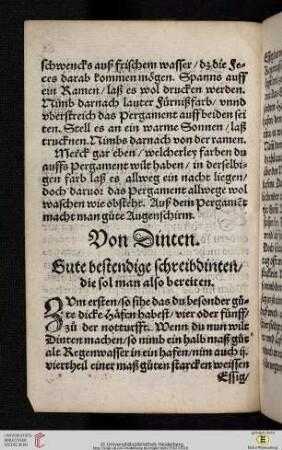 schwencks auß frischem wasser / dz die Fe-
ces darab kommen mögen. Spanns auff
ein Ramen / laß es wol drucken werden.
Nimb darnach lauter Fürnißfarb / vnnd
vberstreich das Pergament auff beiden sei
ten. Stell es an ein warme Sonnen / laß
trucknen. Nimbs darnach von der ramen.
Merck gar eben / welcherley farben du
auffs Pergament wilt haben / in derselbi-
gen farb laß es allweg ein nacht liegen /
doch daruor das pergament allwege wol
waschen wie obsteht. Auß dem Pergamēt
macht man gůte Augenschirm.
Von Dinten.
Gute bestendige schreibdinten /
die sol man also bereiten.
ZVm ersten / so sihe das du besonder gů-
te dicke Häfen habest / vier oder fünff /
zů der notturfft. Wenn du nun wilt
Dinten machen / so nimb ein halb maß gůt
alt Regenwasser in ein hafen / nim auch ij.
viertheil einer maß gůten starcken weissen
Essig /
UNIVERSITÄTS-
BIBLIOTHEK
HEIDELBERG
© Universitätsbibliothek Heidelberg